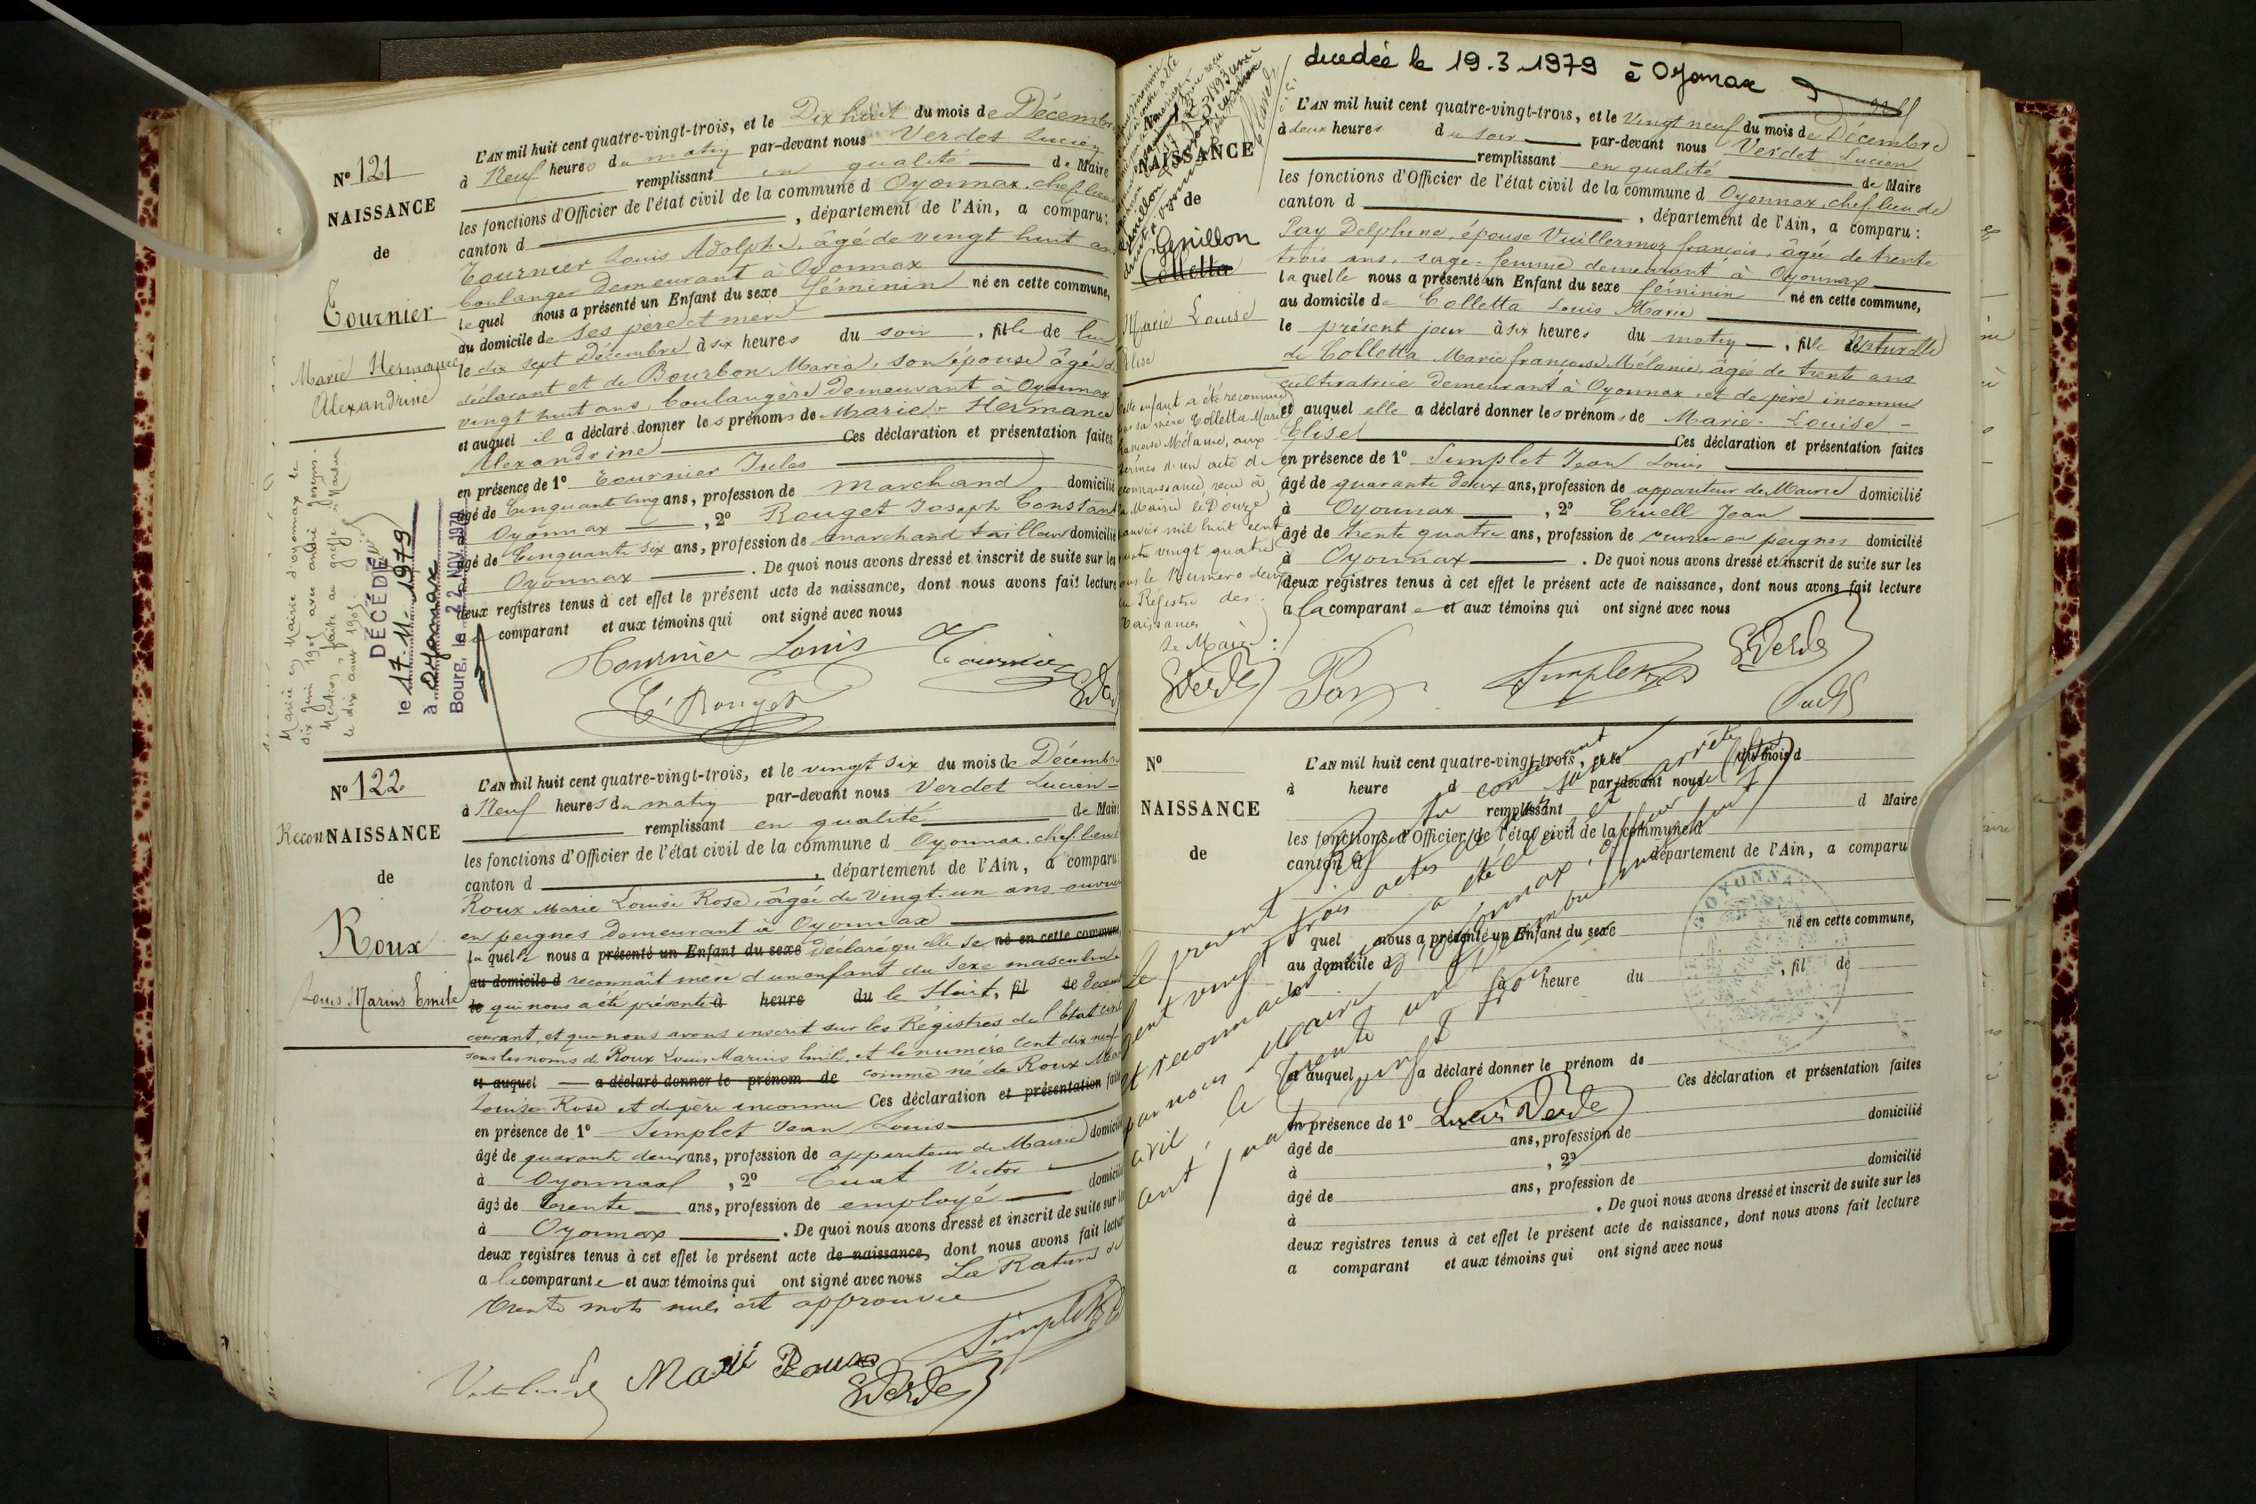 N° 121
NAISSANCE
de
Tournier
Marie Hermance
Alexandrine
L'AN mil huit cent quatre-vingt-trois, et le Dix huit du mois de Décembre
à Neuf heures du matin par-devant nous Verdet Lucien
remplissant en qualité de Maire
les fonctions d'Officier de l'état civil de la commune d Oyonnax, chef lieu
canton d , département de l'Ain, a comparu :
Tournier Louis Adolphe, âgé de vingt huit ans
boulanger demeurant à Oyonnax
lequel nous a présenté un Enfant du sexe féminin né en cette commune,
au domicile de ses père et mère
le dix sept Décembre à six heures du soir , fille de lui
déclarant et de Bourbon Maria, son épouse âgée de
vingt huit ans, boulangère demeurant à Oyonnax
et auquel il a déclaré donner les prénoms de Marie - Hermance
Alexandrine Ces déclaration et présentation faites
en présence de 1° Tournier Jules
âgé de Cinquante cinq ans, profession de marchand domicilié
Oyonnax , 2° Rouget Joseph Constant
âgé de Cinquante six ans, profession de marchand tailleur domicilié
Oyonnax . De quoi nous avons dressé et inscrit de suite sur les
deux registres tenus à cet effet le présent acte de naissance, dont nous avons fait lecture
comparant et aux témoins qui ont signé avec nous
Tournier Louis Tournier
C. Rouget
Mariée en Mairie d'oyonnax le
dix juin 1905 avec andré Joseph.
Mention faite au greffe
le dix août 1905.
DÉCÉDÉE
le 17.11.1979
à Oyonnax
Bourg, le 22 NOV. 1979
N° 122
Recon NAISSANCE
de
Roux
Louis Marius Emile
L'AN mil huit cent quatre-vingt-trois, et le vingt six du mois de Décembre
à Neuf heures du matin par-devant nous Verdet Lucien
remplissant en qualité de Maire
les fonctions d'Officier de l'état civil de la commune d Oyonnax, chef lieu
canton d , département de l'Ain, a comparu
Roux Marie Louise Rose, âgée de vingt-un ans, ouvrière
en peignes demeurant à Oyonnax
laquelle nous a présenté un Enfant du sexe déclaré qu'elle se né en cette commune,
au domicile d reconnaît mère d'un enfant du sexe masculin
le qui nous a été présenté à heure du le Huit, fil de décembre
courant, et que nous avons inscrit sur les Régistres de l'état civil
sous les noms de Roux Louis Marius Emile, et le numéro Cent dix neuf
et auquel a déclaré donner le prénom de comme né de Roux Marie
Louise Rose et de père inconnu Ces déclaration et présentation faites
en présence de 1° Simplet Jean Louis
âgé de quarante deux ans, profession de appariteur de Mairie domicilié
à Oyonnax , 2° Cuat Victor
âgé de trente ans, profession de employé domicilié
à Oyonnax . De quoi nous avons dressé et inscrit de suite sur les
deux registres tenus à cet effet le présent acte de naissance, dont nous avons fait lecture
a la comparante et aux témoins qui ont signé avec nous La Rature de
trente mots nuls est approuvée
Marie Roux Simplet
Verdet
decedée le 19.3.1979 à Oyonnax
NAISSANCE
de
Genillon
Colletta
Marie Louise
Elise
Cette enfant a été reconnue
par sa mère Colletta Marie
françoise Mélanie, aux
termes d'un acte de
reconnaissance reçu à
la Mairie le Douze
Janvier mil huit cent
quatre vingt quatre
sous le Numéro deux
au Registre des
Naissances
Le Maire :
Verdet
L'AN mil huit cent quatre-vingt-trois, et le Vingt neuf du mois de Décembre
à deux heures du soir par-devant nous Verdet Lucien
remplissant en qualité de Maire
les fonctions d'Officier de l'état civil de la commune d Oyonnax, chef lieu de
canton d , département de l'Ain, a comparu :
Pay Delphine, épouse Vuillermoz françois, âgée de trente
trois ans, sage-femme demeurant à Oyonnax
laquelle nous a présenté un Enfant du sexe féminin né en cette commune,
au domicile de Colletta Louis Marie
le présent jour à six heures du matin , fille Naturelle
de Colletta Marie françoise Mélanie, âgée de trente ans
cultivatrice demeurant à Oyonnax, et de père inconnu
et auquel elle a déclaré donner les prénoms de Marie - Louise -
Elise Ces déclaration et présentation faites
en présence de 1° Simplet Jean Louis
âgé de quarante deux ans, profession de appariteur de Mairie domicilié
à Oyonnax , 2° Cruell Jean
âgé de trente quatre ans, profession de ouvrier en peignes domicilié
à Oyonnax . De quoi nous avons dressé et inscrit de suite sur les
deux registres tenus à cet effet le présent acte de naissance, dont nous avons fait lecture
a la comparante et aux témoins qui ont signé avec nous
Pay Simplet Verdet
N°
NAISSANCE
de
L'AN mil huit cent quatre-vingt-trois, et le du mois d
à heure d par-devant nous
remplissant d Maire
les fonctions d'Officier de l'état civil de la commune d
canton d département de l'Ain, a comparu
quel nous a présenté un Enfant du sexe né en cette commune,
au domicile d
le à heure du , fil de
et auquel a déclaré donner le prénom de
Ces déclaration et présentation faites
en présence de 1°
âgé de ans, profession de domicilié
à , 2°
âgé de ans, profession de domicilié
à . De quoi nous avons dressé et inscrit de suite sur les
deux registres tenus à cet effet le présent acte de naissance, dont nous avons fait lecture
a comparant et aux témoins qui ont signé avec nous
Le présent Registre contenant
cent vingt trois actes de naissance
et reconnaissances a été clos et arrêté
par nous Maire d'Oyonnax, officier de l'état
civil, le trente un Décembre mil huit
cent quatre vingt trois
Lucien Verdet
OYONNAX